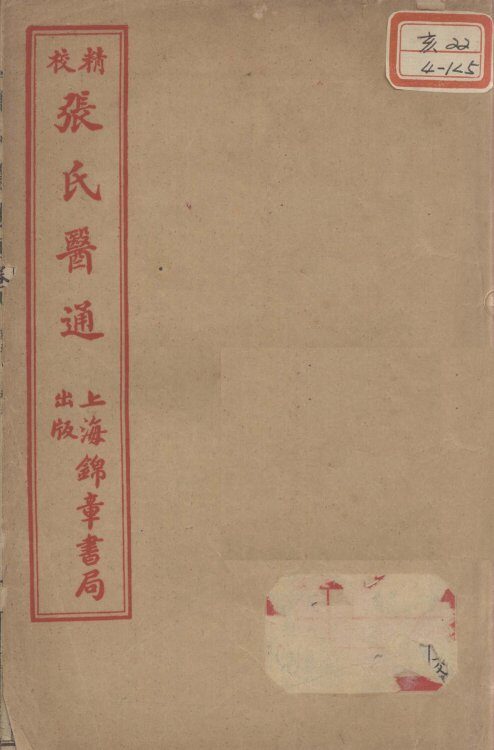 精校
張氏醫通
上海錦章書局
出版
亥22
4-125